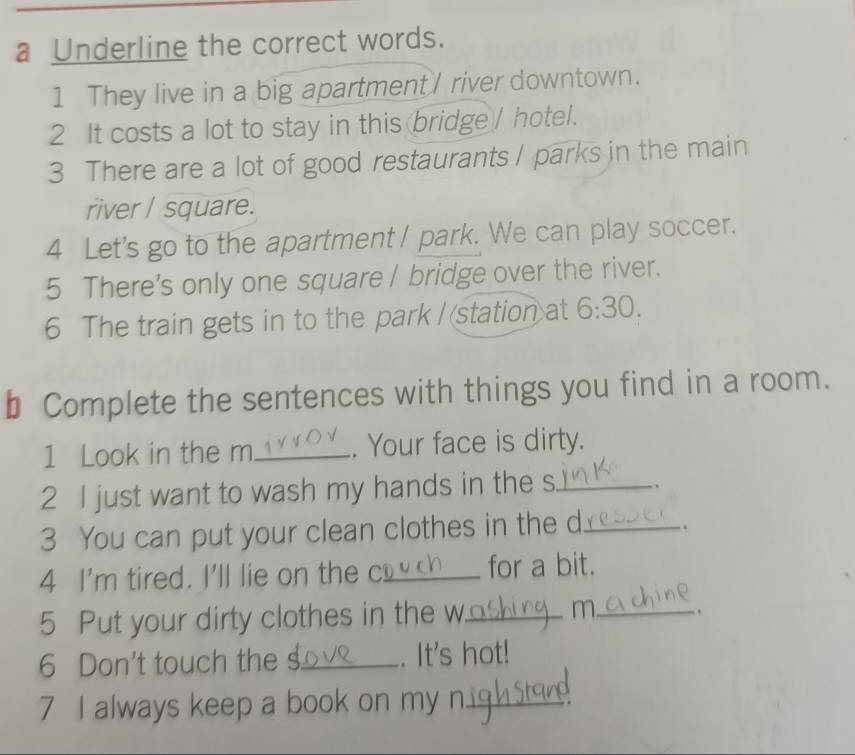 a Underline the correct words.
1 They live in a big apartment / river downtown.
2 It costs a lot to stay in this bridge / hotel.
3 There are a lot of good restaurants / parks in the main
river / square.
4 Let's go to the apartment / park. We can play soccer.
5 There's only one square / bridge over the river.
6 The train gets in to the park / station at 6:30.
b Complete the sentences with things you find in a room.
1 Look in the mirror. Your face is dirty.
2 I just want to wash my hands in the sink.
3 You can put your clean clothes in the dresser.
4 I'm tired. I'll lie on the couch for a bit.
5 Put your dirty clothes in the washing machine.
6 Don't touch the sove. It's hot!
7 I always keep a book on my nighstand.